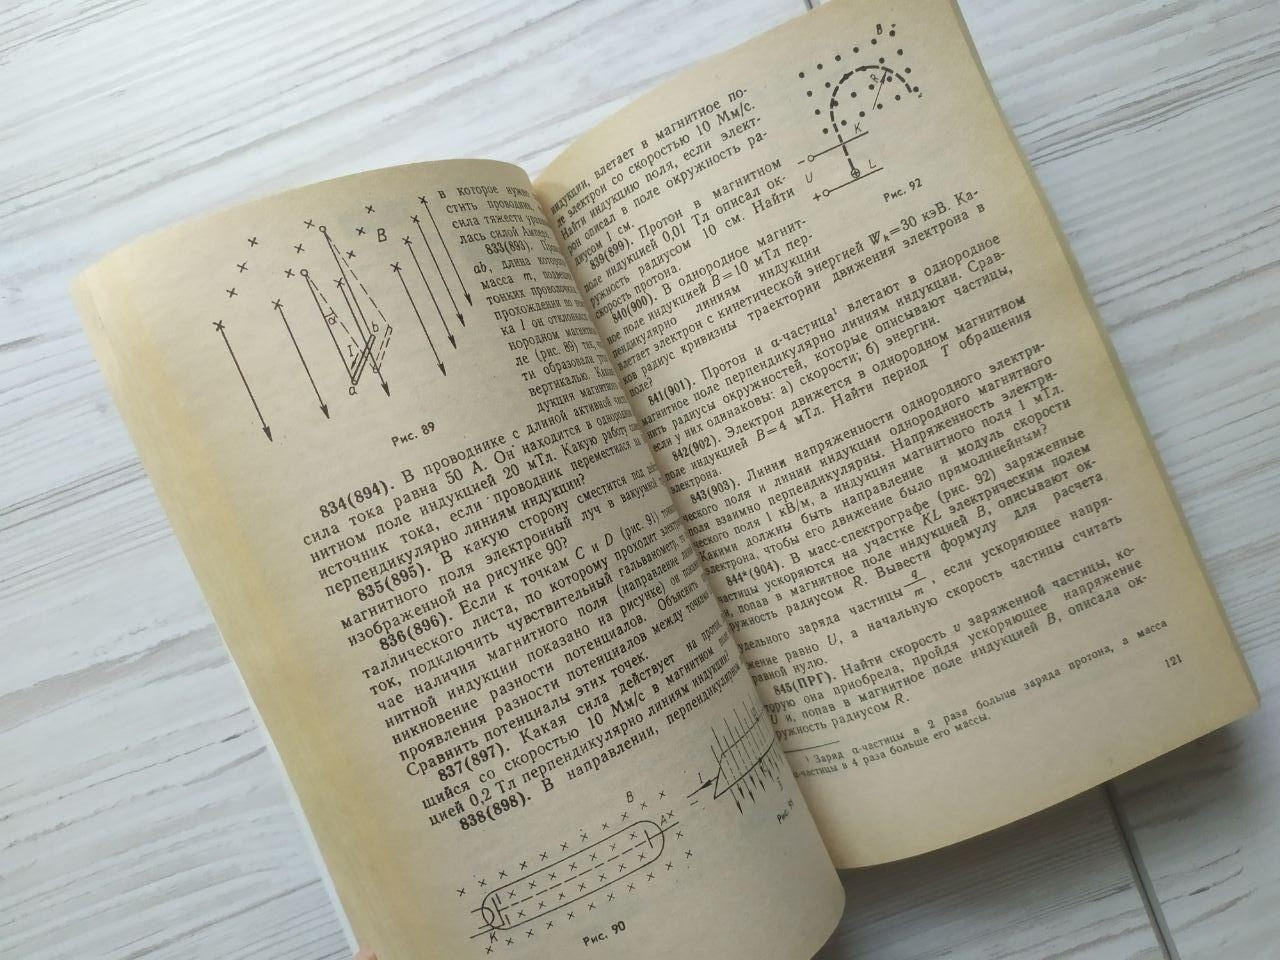 в которое нужно
стить проводник,
сила тяжести уравно
лась силой Ампера
833(893). Прово
ab, длина которого
масса m, подвешен
тонких проволочках
прохождении по нему
ка I он отклонился
нородном магнитном
ле (рис. 89) так, что
ти образовали угол
вертикалью. Какова
дукция магнитного
B
α
I
b
a
Рис. 89
834(894). В проводнике с длиной активной части
сила тока равна 50 А. Он находится в однородном
нитном поле индукцией 20 мТл. Какую работу
источник тока, если проводник переместился на
перпендикулярно линиям индукции?
835(895). В какую сторону сместится под дей
магнитного поля электронный луч в вакуумной
изображенной на рисунке 90?
836(896). Если к точкам C и D (рис. 91) тонкого
таллического листа, по которому проходит электр
ток, подключить чувствительный гальванометр, то
чае наличия магнитного поля (направление линий
нитной индукции показано на рисунке) он покажет
никновение разности потенциалов. Объяснить
проявления разности потенциалов между точками
Сравнить потенциалы этих точек.
837(897). Какая сила действует на протон,
щийся со скоростью 10 Мм/с в магнитном поле
цией 0,2 Тл перпендикулярно линиям индукции?
838(898). В направлении, перпендикулярном
B
A
K
Рис. 90
I
Рис. 91
индукции, влетает в магнитное по-
ле электрон со скоростью 10 Мм/с.
Найти индукцию поля, если элект-
рон описал в поле окружность ра-
диусом 1 см.
839(899). Протон в магнитном
поле индукцией 0,01 Тл описал ок-
ружность радиусом 10 см. Найти
скорость протона.
840(900). В однородное магнит-
ное поле индукцией B=10 мТл пер-
пендикулярно линиям индукции
влетает электрон с кинетической энергией Wk=30 кэВ. Ка-
ков радиус кривизны траектории движения электрона в
поле?
B
R
K
U
L
Рис. 92
841(901). Протон и α-частица¹ влетают в однородное
магнитное поле перпендикулярно линиям индукции. Срав-
нить радиусы окружностей, которые описывают частицы,
если у них одинаковы: а) скорости; б) энергии.
842(902). Электрон движется в однородном магнитном
поле индукцией B=4 мТл. Найти период T обращения
электрона.
843(903). Линии напряженности однородного электри-
ческого поля и линии индукции однородного магнитного
поля взаимно перпендикулярны. Напряженность электри-
ческого поля 1 кВ/м, а индукция магнитного поля 1 мТл.
Какими должны быть направление и модуль скорости
электрона, чтобы его движение было прямолинейным?
844*(904). В масс-спектрографе (рис. 92) заряженные
частицы ускоряются на участке KL электрическим полем
и, попав в магнитное поле индукцией B, описывают ок-
ружность радиусом R. Вывести формулу для расчета
удельного заряда частицы q/m, если ускоряющее напря-
жение равно U, а начальную скорость частицы считать
равной нулю.
845(ПРГ). Найти скорость υ заряженной частицы, ко-
торую она приобрела, пройдя ускоряющее напряжение
U и, попав в магнитное поле индукцией B, описала ок-
ружность радиусом R.
¹ Заряд α-частицы в 2 раза больше заряда протона, а масса
α-частицы в 4 раза больше его массы.
121